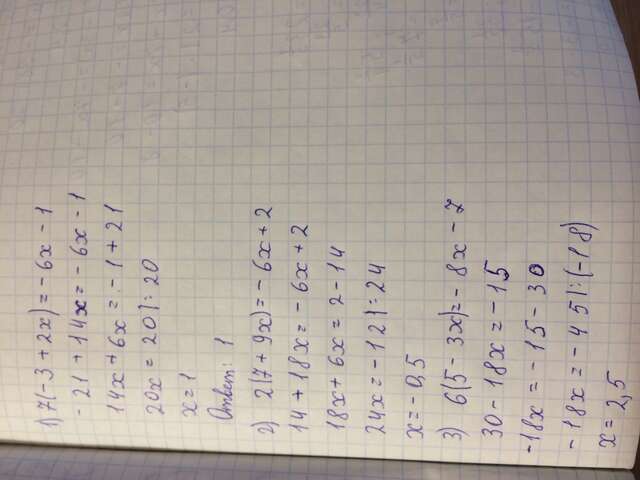 1) 7(-3 + 2x) = - 6x - 1
- 21 + 14x = - 6x - 1
14x + 6x = - 1 + 21
20x = 20 | : 20
x = 1
Ответ: 1
2) 2(7 + 9x) = - 6x + 2
14 + 18x = - 6x + 2
18x + 6x = 2 - 14
24x = - 12 | : 24
x = - 0,5
3) 6(5 - 3x) = - 8x - 7
30 - 18x = - 15
-18x = - 15 - 30
- 18x = - 45 | : (-18)
x = 2,5